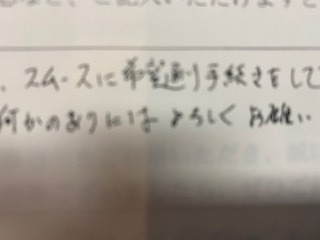 、スムースに希望通り手続きをして
何かのありには よろしく お願い